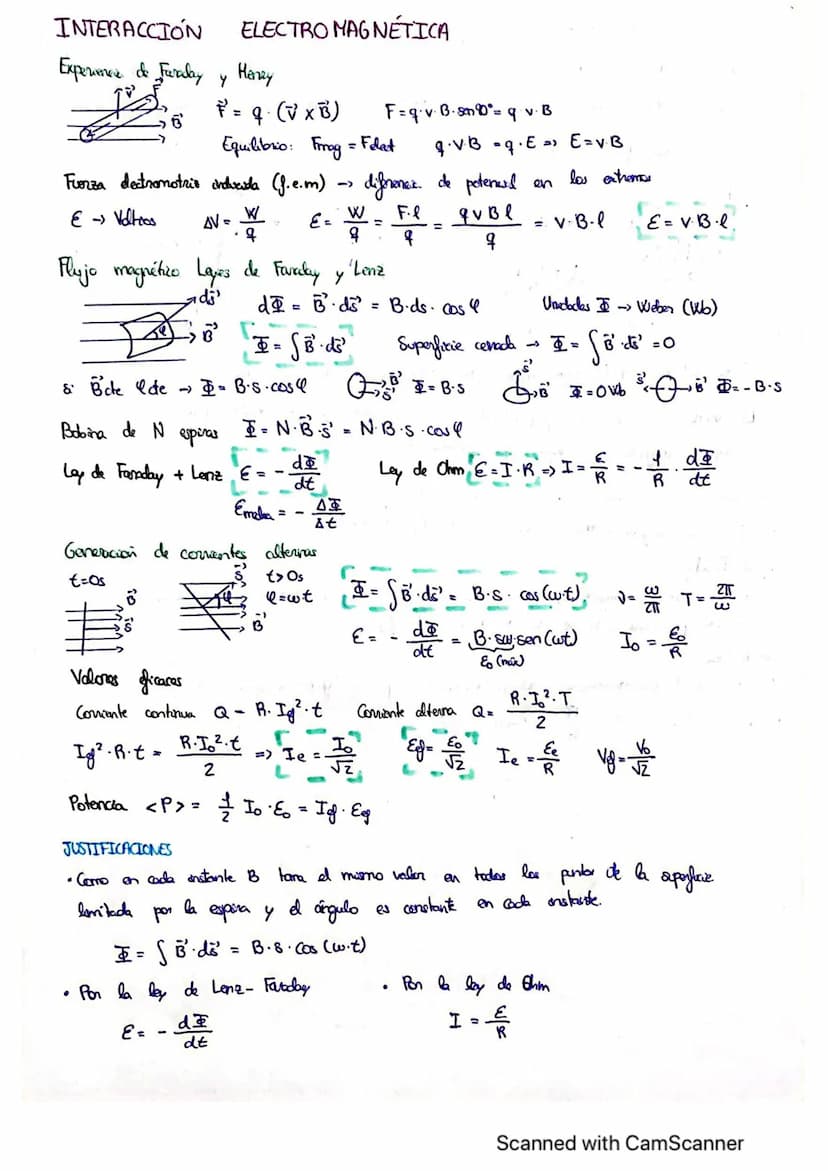 INTERACCIÓN ELECTROMAGNÉTICA
Experiencia de Faraday y Henry
F⃗ = q · (v⃗ x B⃗) F = q · v · B · sen90° = q v · B
Equilibrio: Fmag = Felect q · v · B = q · E => E = v · B
Fuerza electromotriz inducida (f.e.m) → diferencia de potencial en los extremos
ε → Voltios ΔV = W/q ε = W/q = F·l/q = qvBl/q = v · B · l ε = v · B · l
Flujo magnético Leyes de Faraday y Lenz
ds⃗ dΦ = B⃗ · ds⃗ = B · ds · cos φ Unidades Φ → Weber (Wb)
φ B⃗ Φ = ∫ B⃗ · ds⃗ Superficie cerrada → Φ = ∫ B⃗ · ds⃗ = 0
si B⃗ cte φ cte → Φ = B · S · cos φ B⃗ S⃗ Φ = B · S S⃗ B⃗ Φ = 0 Wb S⃗ B⃗ Φ = - B · S
Bobina de N espiras Φ = N · B⃗ · S⃗ = N · B · S · cos φ
Ley de Faraday + Lenz ε = - dΦ/dt Ley de Ohm ε = I · R => I = ε/R = - 1/R · dΦ/dt
εmedia = - ΔΦ/Δt
Generación de corrientes alternas
t=0s B⃗ S⃗ S⃗ t>0s φ φ=ωt B⃗ Φ = ∫ B⃗ · ds⃗ = B · S · cos (ω·t) ν = ω/2π T = 2π/ω
ε = - dΦ/dt = B · S ω · sen (ωt) I₀ = ε₀/R
ε₀ (máx)
Valores eficaces
Corriente continua Q = R · Ief² · t Corriente alterna Q = R · I₀² · T/2
Ief² · R · t = R · I₀² · t/2 => Ie = I₀/√2 εef = ε₀/√2 Ie = εe/R Vef = V₀/√2
Potencia <P> = 1/2 I₀ · ε₀ = Ief · εef
JUSTIFICACIONES
• Como en cada instante B toma el mismo valor en todos los puntos de la superficie
limitada por la espira y el ángulo es constante en cada instante.
Φ = ∫ B⃗ · ds⃗ = B · S · cos (ω·t)
• Por la ley de Lenz-Faraday • Por la ley de Ohm
ε = - dΦ/dt I = ε/R
Scanned with CamScanner